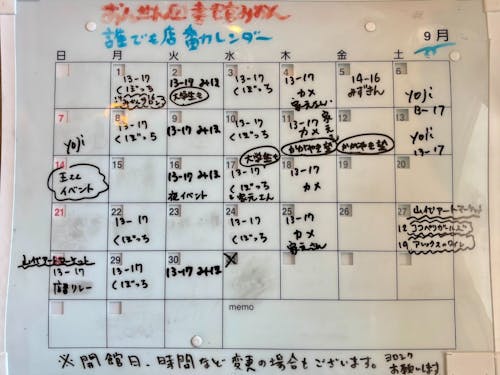 おんせん図書館みかん
誰でも店番カレンダー
9月
日 月 火 水 木 金 土
1
13-17
くぼっち
2
13-17 みほ
大学生も
3
13-17
くぼっち
4
13-17
カメ
5
14-16
みずきん
6
yoji
13-17
7
yoji
8
13-17
くぼっち
9
13-17 みほ
10
13-17
くぼっち
11
13-17
カメ
12
13
yoji
13-17
14
イベント
15
16
13-17 みほ
夜イベント
17
大学生も
13-17
くぼっち
18
13-17
カメ
19
20
21
22
13-17
くぼっち
23
13-17 みほ
24
13-17
くぼっち
25
13-17
カメ
26
27
山代アートマーケット
山代アートマーケット
13-17
29
13-17
くぼっち
30
13-17 みほ
memo
※開館日、時間など変更の場合もございます。
お願いします